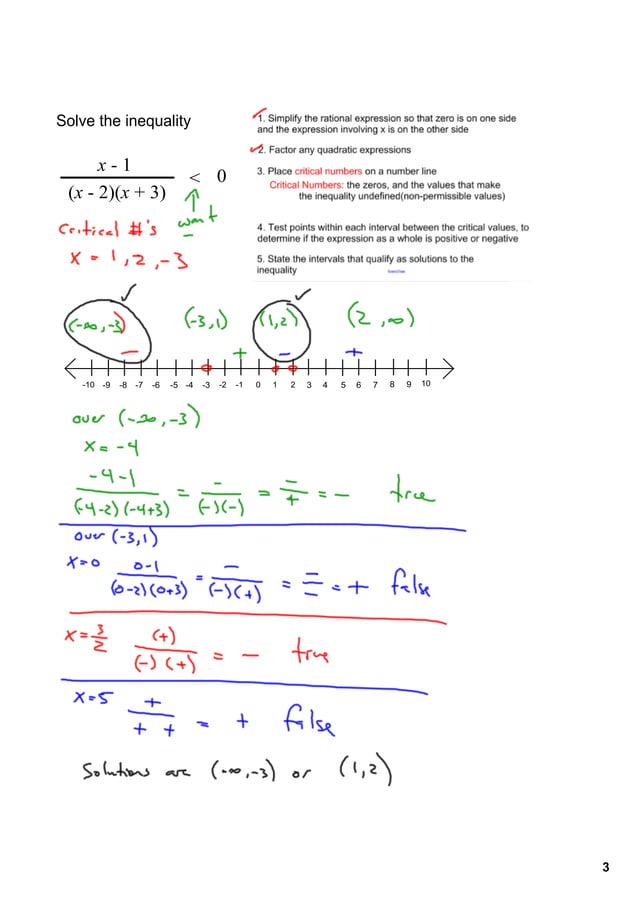 Solve the inequality
x - 1
(x - 2)(x + 3) < 0
1. Simplify the rational expression so that zero is on one side
and the expression involving x is on the other side
2. Factor any quadratic expressions
3. Place critical numbers on a number line
Critical Numbers: the zeros, and the values that make
the inequality undefined(non-permissible values)
4. Test points within each interval between the critical values, to
determine if the expression as a whole is positive or negative
5. State the intervals that qualify as solutions to the
inequality
Critical #'s want
x = 1, 2, -3 -
(-∞, -3) (-3, 1) (1, 2) (2, ∞)
- + - +
-10 -9 -8 -7 -6 -5 -4 -3 -2 -1 0 1 2 3 4 5 6 7 8 9 10
over (-∞, -3)
x = -4
-4-1
(-4-2)(-4+3) = - / (-)(-) = - / + = - true
over (-3, 1)
x=0 0-1
(0-2)(0+3) = - / (-)(+) = - / - = + false
x = 3/2 (+) / (-)(+) = - true
x=5 + / + + = + false
Solutions are (-∞, -3) or (1, 2)
3